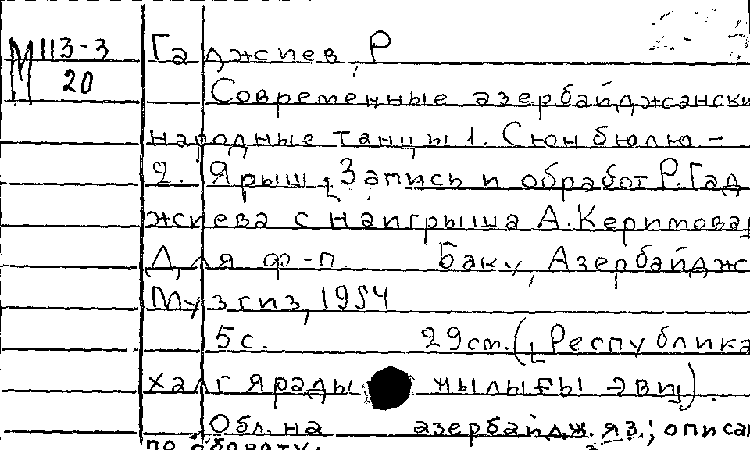 М 113-3
20
Гаджиев, Р
Современные азербайджански
народные танцы 1. Сюнбюлю –
2. Ярыш [Запись и обработ Р. Гад
жиева с наигрыша А. Керимова]
Для ф-п Баку, Азербайдж
Музгиз, 1954
5с. 29см. ([Республика
халг ярадычылығы эви]).
Обл. на азербайдж. яз.; описан
по обороту